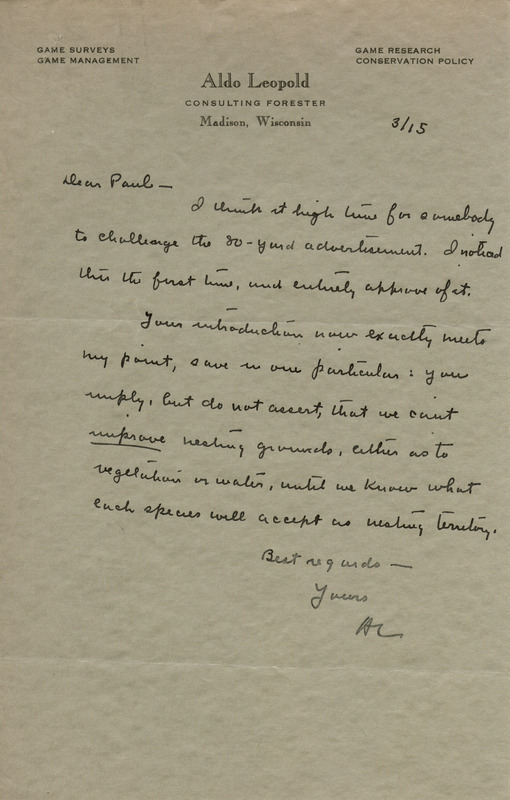 GAME SURVEYS
GAME MANAGEMENT
GAME RESEARCH
CONSERVATION POLICY
Aldo Leopold
CONSULTING FORESTER
Madison, Wisconsin
3/15
Dear Paul—
I think it high time for somebody
to challenge the 80-yard advertisement. I noticed
this the first time, and entirely approve of it.
Your introduction now exactly meets
my point, save in one particular: you
imply, but do not assert, that we can't
improve nesting grounds, either as to
vegetation or water, until we know what
each species will accept as nesting territory.
Best regards—
Yours
AL